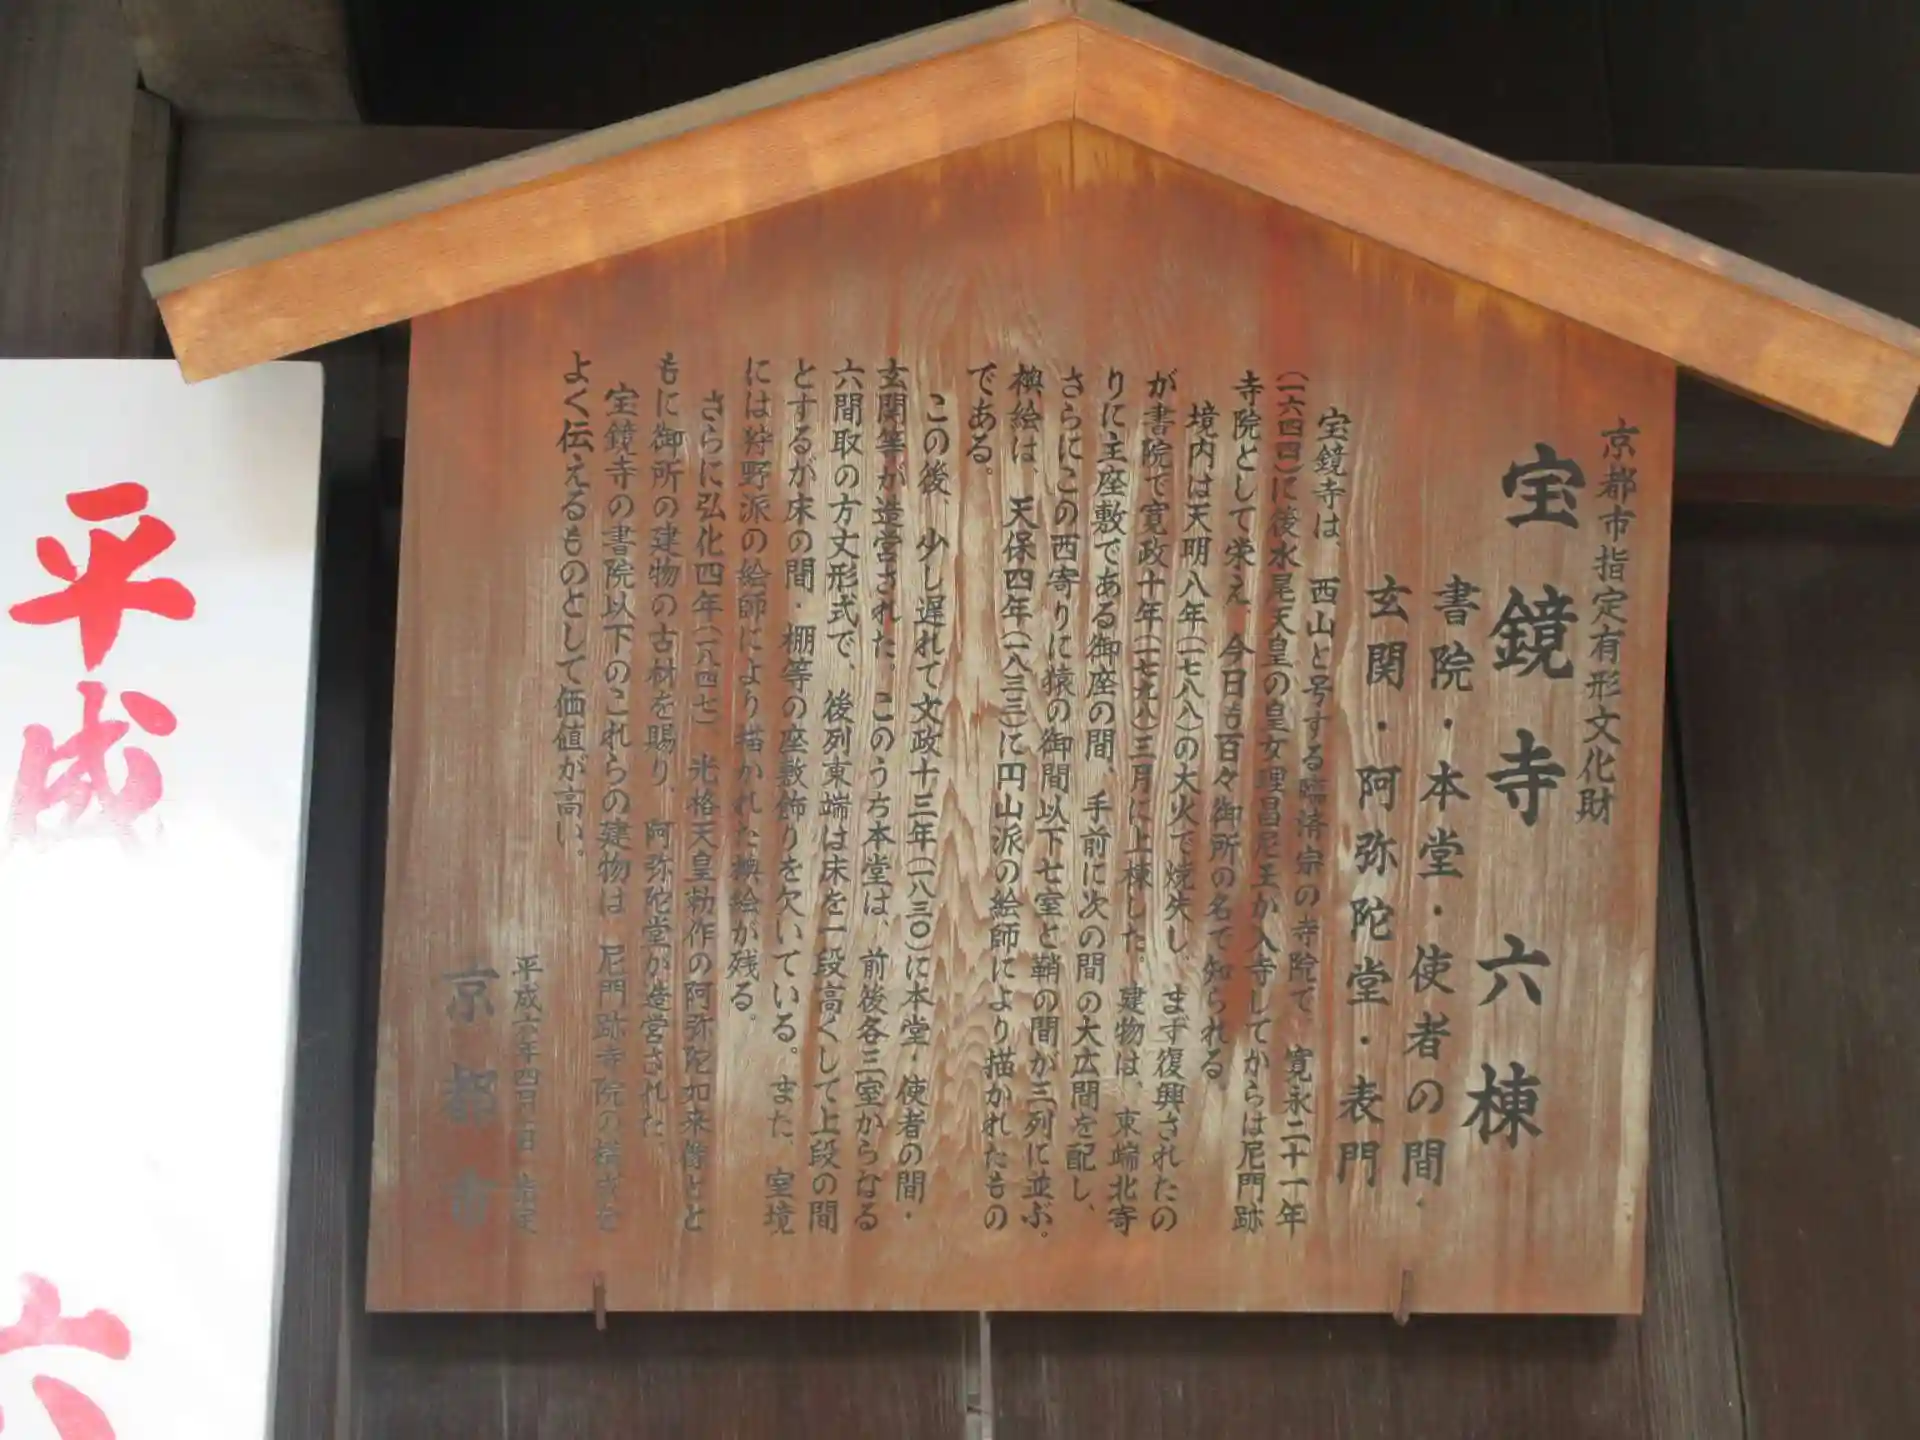 京都市指定有形文化財
宝鏡寺 六棟
書院・本堂・使者の間・
玄関・阿弥陀堂・表門
宝鏡寺は、西山と号する臨済宗の寺院で、寛永二十一年
(一六四四)に後水尾天皇の皇女理昌尼王が入寺してからは尼門跡
寺院として栄え、今日も百々御所の名で知られる
境内は天明八年(一七八八)の大火で焼失し、まず復興されたの
が書院で寛政十年(一七九八)三月に上棟した。建物は、東端北寄
りに主座敷である御座の間、手前に次の間の大広間を配し、
さらにこの西寄りに猿の御間以下七室と鞘の間が三列に並ぶ。
襖絵は、天保四年(一八三三)に円山派の絵師により描かれたもの
である。
この後、少し遅れて文政十三年(一八三〇)に本堂・使者の間・
玄関等が造営された。このうち本堂は、前後各三室からなる
六間取の方丈形式で、後列東端は床を一段高くして上段の間
とするが床の間・棚等の座敷飾りを欠いている。また、室境
には狩野派の絵師により描かれた襖絵が残る。
さらに弘化四年(一八四七)、光格天皇勅作の阿弥陀如来像とと
もに御所の建物の古材を賜り、阿弥陀堂が造営された。
宝鏡寺の書院以下のこれらの建物は、尼門跡寺院の構成を
よく伝えるものとして価値が高い。
平成六年四月一日 指定
京都市
平成
六